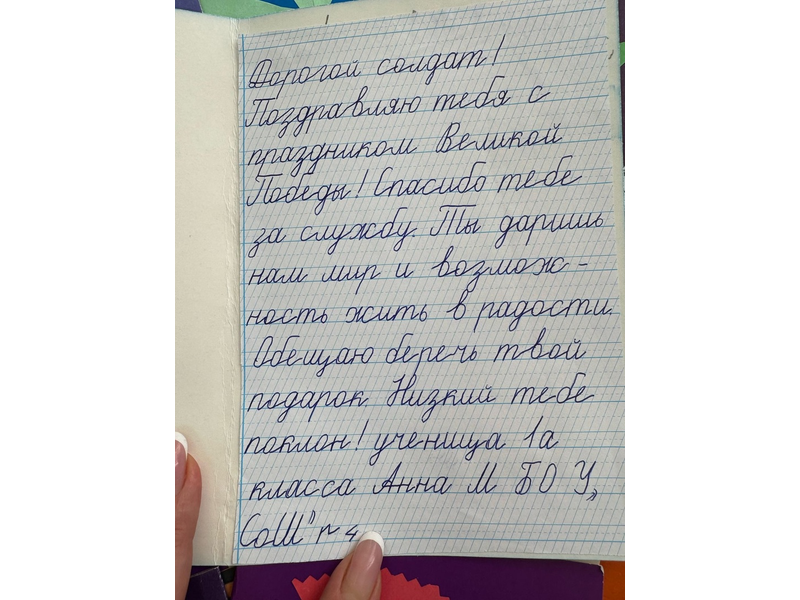 Дорогой солдат!
Поздравляю тебя с
праздником Великой
Победы! Спасибо тебе
за службу. Ты даришь
нам мир и возмож-
ность жить в радости.
Обещаю беречь твой
подарок. Низкий тебе
поклон! ученица 1а
класса Анна М БО У„
СОШ" №4